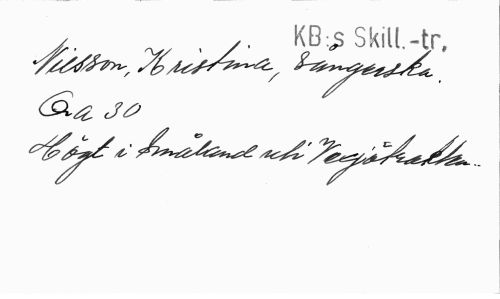 KB:s Skill.-tr.
Nilsson, Kristina, Sångerska.
Qa 30
Högt i Småland uti Vexjötrakten..